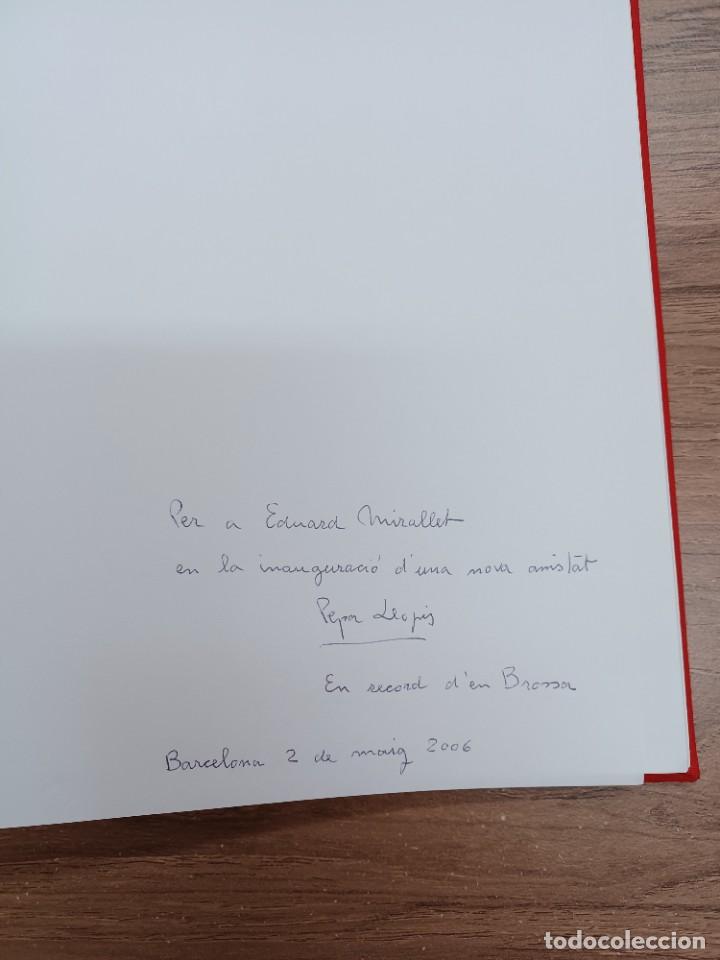 Per a Eduard Mirallet
en la inauguració d'una nova amistat
Pepa Llopis
En record d'en Brossa
Barcelona 2 de maig 2006
todocoleccion